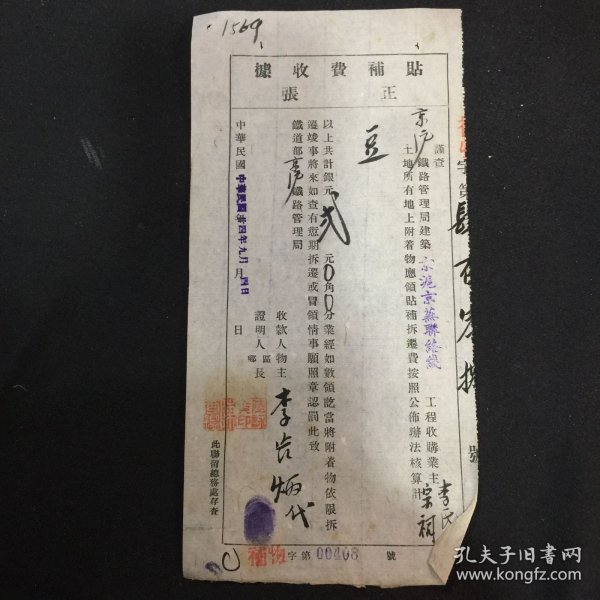 1569
貼補費收據
正張
謹查
京滬鐵路管理局建築京滬京蕪聯絡綫工程收購業主李氏宗祠
土地所有地上附着物應領貼補拆遷費按照公佈辦法核算計
豆
以上共計銀元貳元0角0分業經如數領訖當將附着物依限拆
遷竣事將來如查有愆期拆遷或冒領情事願照章認罰此致
鐵道部京滬鐵路管理局
收款人物主李 炳代
證明人區鄉長
中華民國 月 日
中華民國廿四年九月 四日
此聯留總務處存查
補物字第00408號
字第肆百 號
孔夫子旧书网
www.kongfz.com